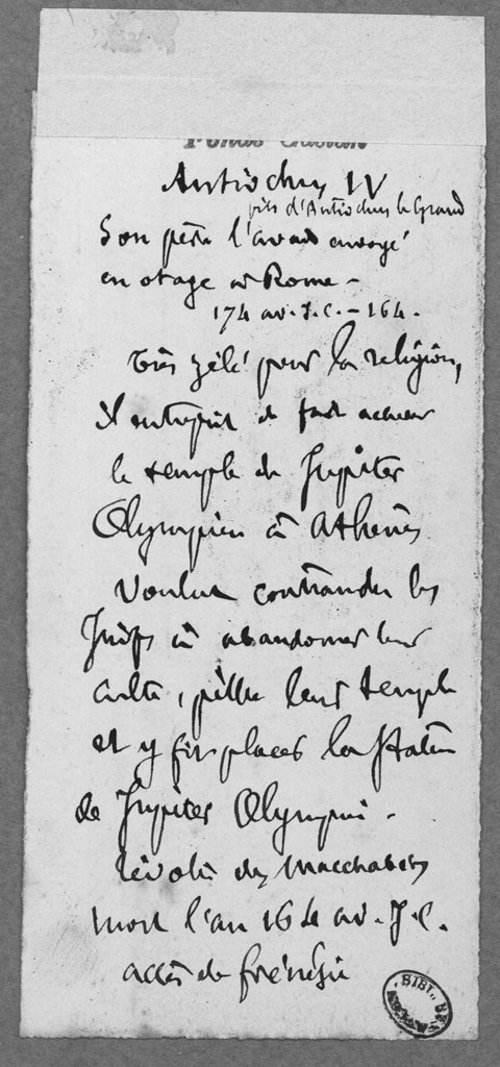 Antiochus IV
fils d'Antiochus le Grand
Son père l'avait envoyé
en otage à Rome –
174 av. J. C. – 164.
Très zélé pour la religion,
il entreprit de faire achever
le temple de Jupiter
Olympien à Athènes
Voulut contraindre les
Juifs à abandonner leur
culte, pilla leur temple
et y fit placer la statue
de Jupiter Olympien –
révolte des Macchabées
mort l'an 164 av. J. C.
accès de frénésie
BIBL